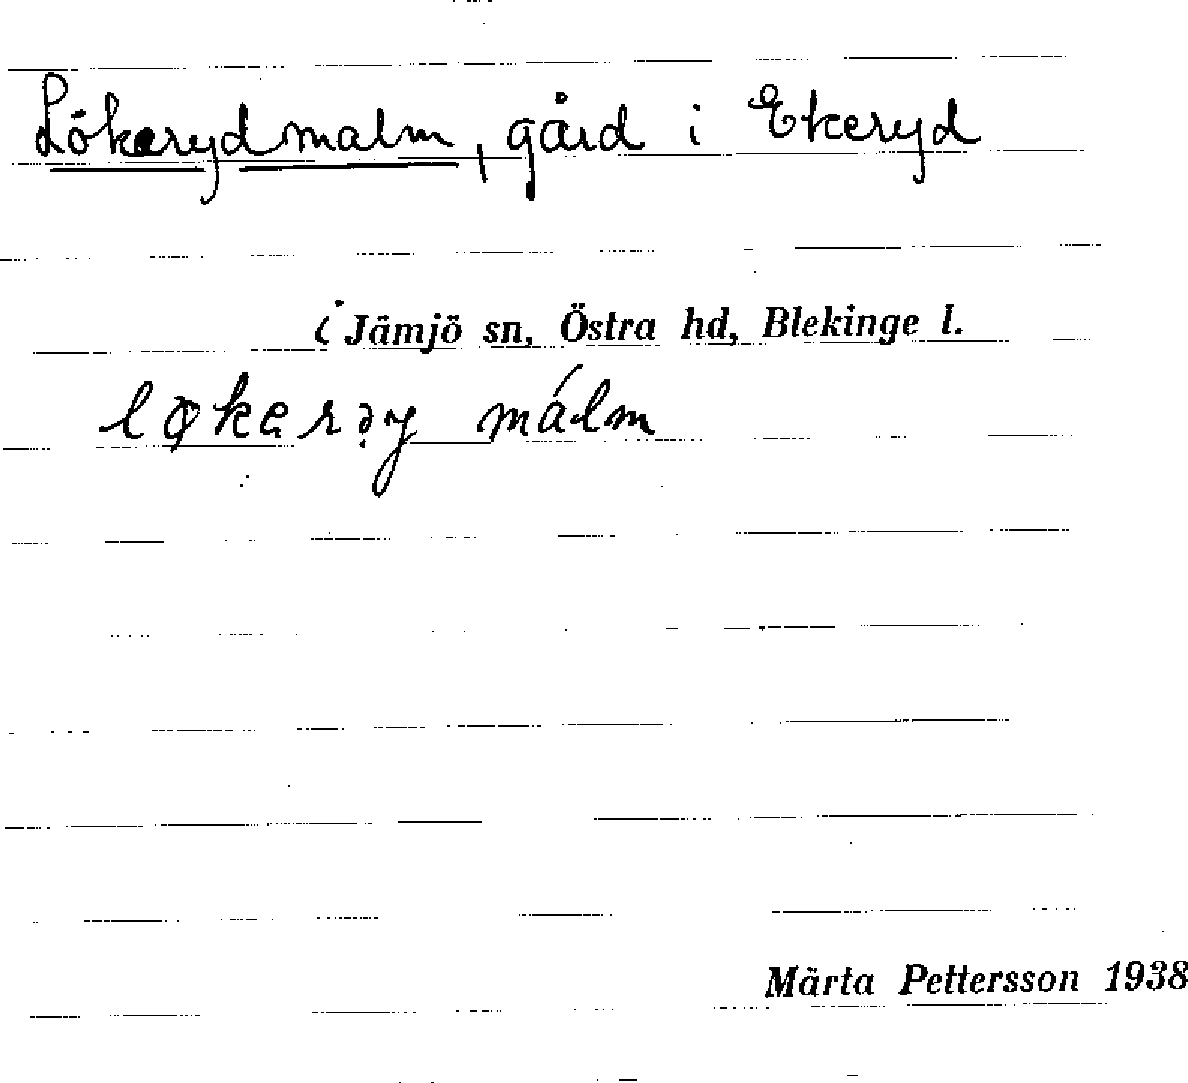 Lökerydmalm, gård i Ekeryd
i Jämjö sn, Östra hd, Blekinge l.
málm
Märta Pettersson 1938